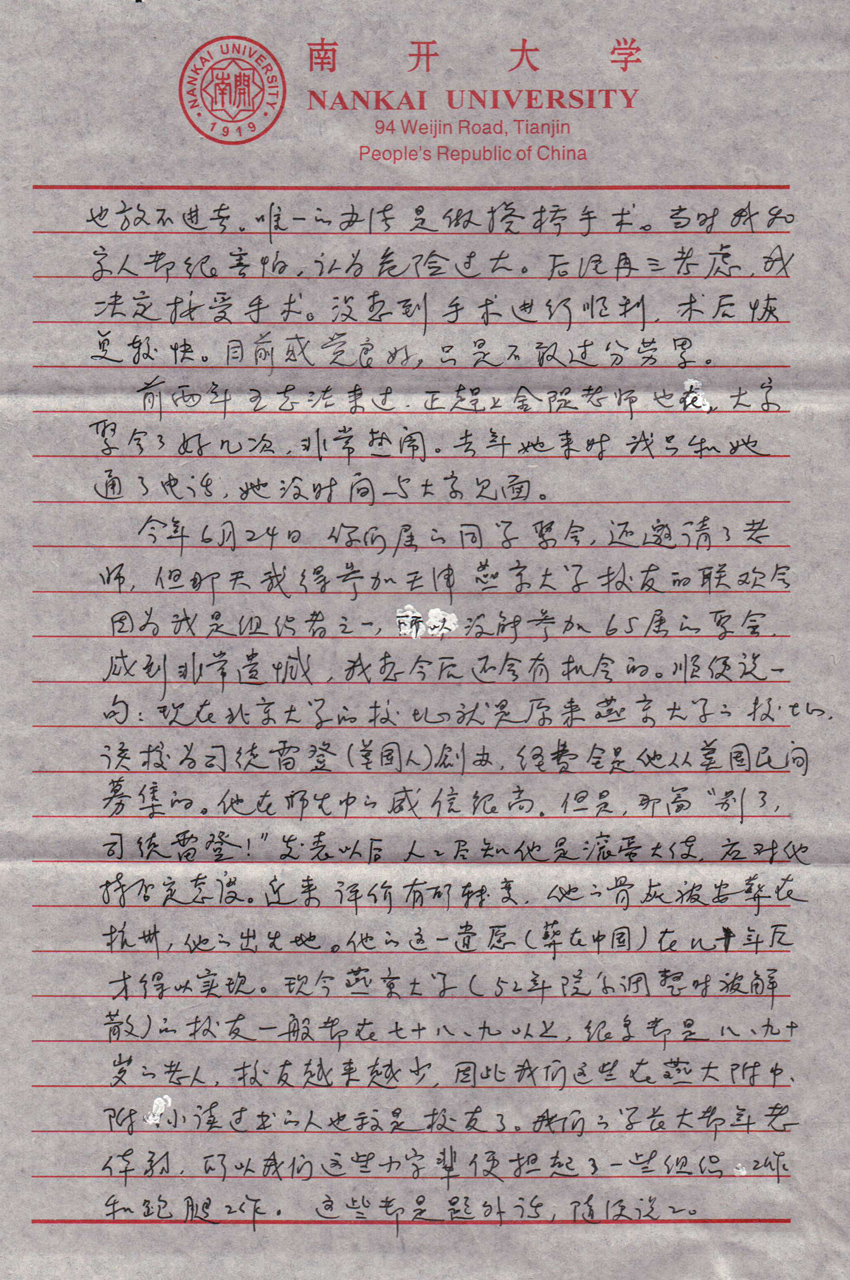 南开大学
NANKAI UNIVERSITY
94 Weijin Road, Tianjin
People's Republic of China
NANKAI UNIVERSITY
南開
1919
也放不进去。唯一的办法是做搭桥手术。当时我和
家人都很害怕，认为危险过大。后经再三考虑，我
决定接受手术。没想到手术进行顺利，术后恢
复较快。目前感觉良好，只是不敢过分劳累。
前两年王志洁来过．正赶上金隄老师也在，大家
聚会了好几次，非常热闹。去年她来时我只和她
通了电话，她没时间与大家见面。
今年6月24日你们届的同学聚会，还邀请了老
师，但那天我得参加天津燕京大学校友的联欢会
因为我是组织者之一，所以没能参加65届的聚会，
感到非常遗憾，我想今后还会有机会的。顺便说一
句：现在北京大学的校址就是原来燕京大学的校址。
该校为司徒雷登(美国人)创办，经费全是他从美国民间
募集的。他在师生中的威信很高。但是，那篇“别了，
司徒雷登！”发表以后人们只知他是滚蛋大使，应对他
持否定态度。近来评价有所转变，他的骨灰被安葬在
杭州，他的出生地。他的这一遗愿(葬在中国)在几十年后
才得以实现。现今燕京大学(52年院系调整时被解
散)的校友一般都在七十八、九以上，很多都是八、九十
岁的老人，校友越来越少，因此我们这些在燕大附中、
附小读过书的人也算是校友了。我们的学长大都年老
体弱，所以我们这些小字辈便担起了一些组织工作
和跑腿工作。 这些都是题外话，随便说说。